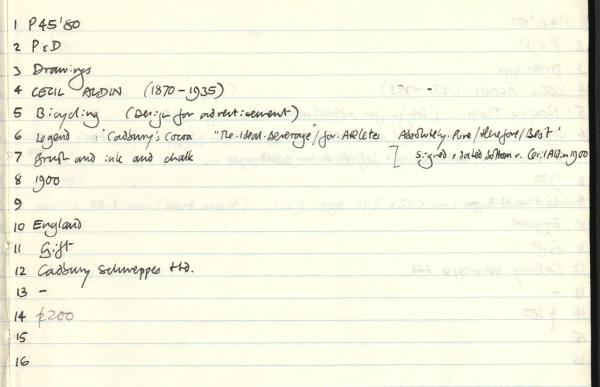 1 P45'80
2 P&D
3 Drawings
4 CECIL ALDIN (1870-1935) -
5 Bicycling (Design for advertisement)
6 Legend: 'Cadbury's Cocoa "The. Ideal. Beverage"/for. Athletes Absolutely. Pure/therefore/Best'
7 Brush and ink and chalk [ Signed & dated bottom r. Cecil Aldin 1900
8 1900
9
10 England
11 Gift
12 Cadbury Schweppes Ltd.
13 -
14 £200
15
16